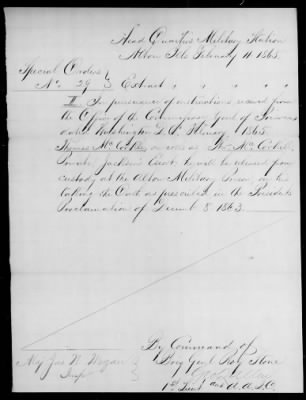 Head Quarters Military Station
Alton Ills February 11 1865
Special Orders
No. 29 Extract " " " "
II In pursuance of instructions received from
the Office of the Commissary Genl of Prisoners
dated Washington D.C. February 1865
Thomas Mc on rolls as Thos Mc
Private Jackson's Escort to will be released from
custody at the Alton Military Prison on his
taking the Oath as prescribed in the Presidents
Proclamation of Decemb 8 1863
By Command of
Brig Genl Roy Stone
Maj Jno W.
1st Lieut and A.A.A.G.